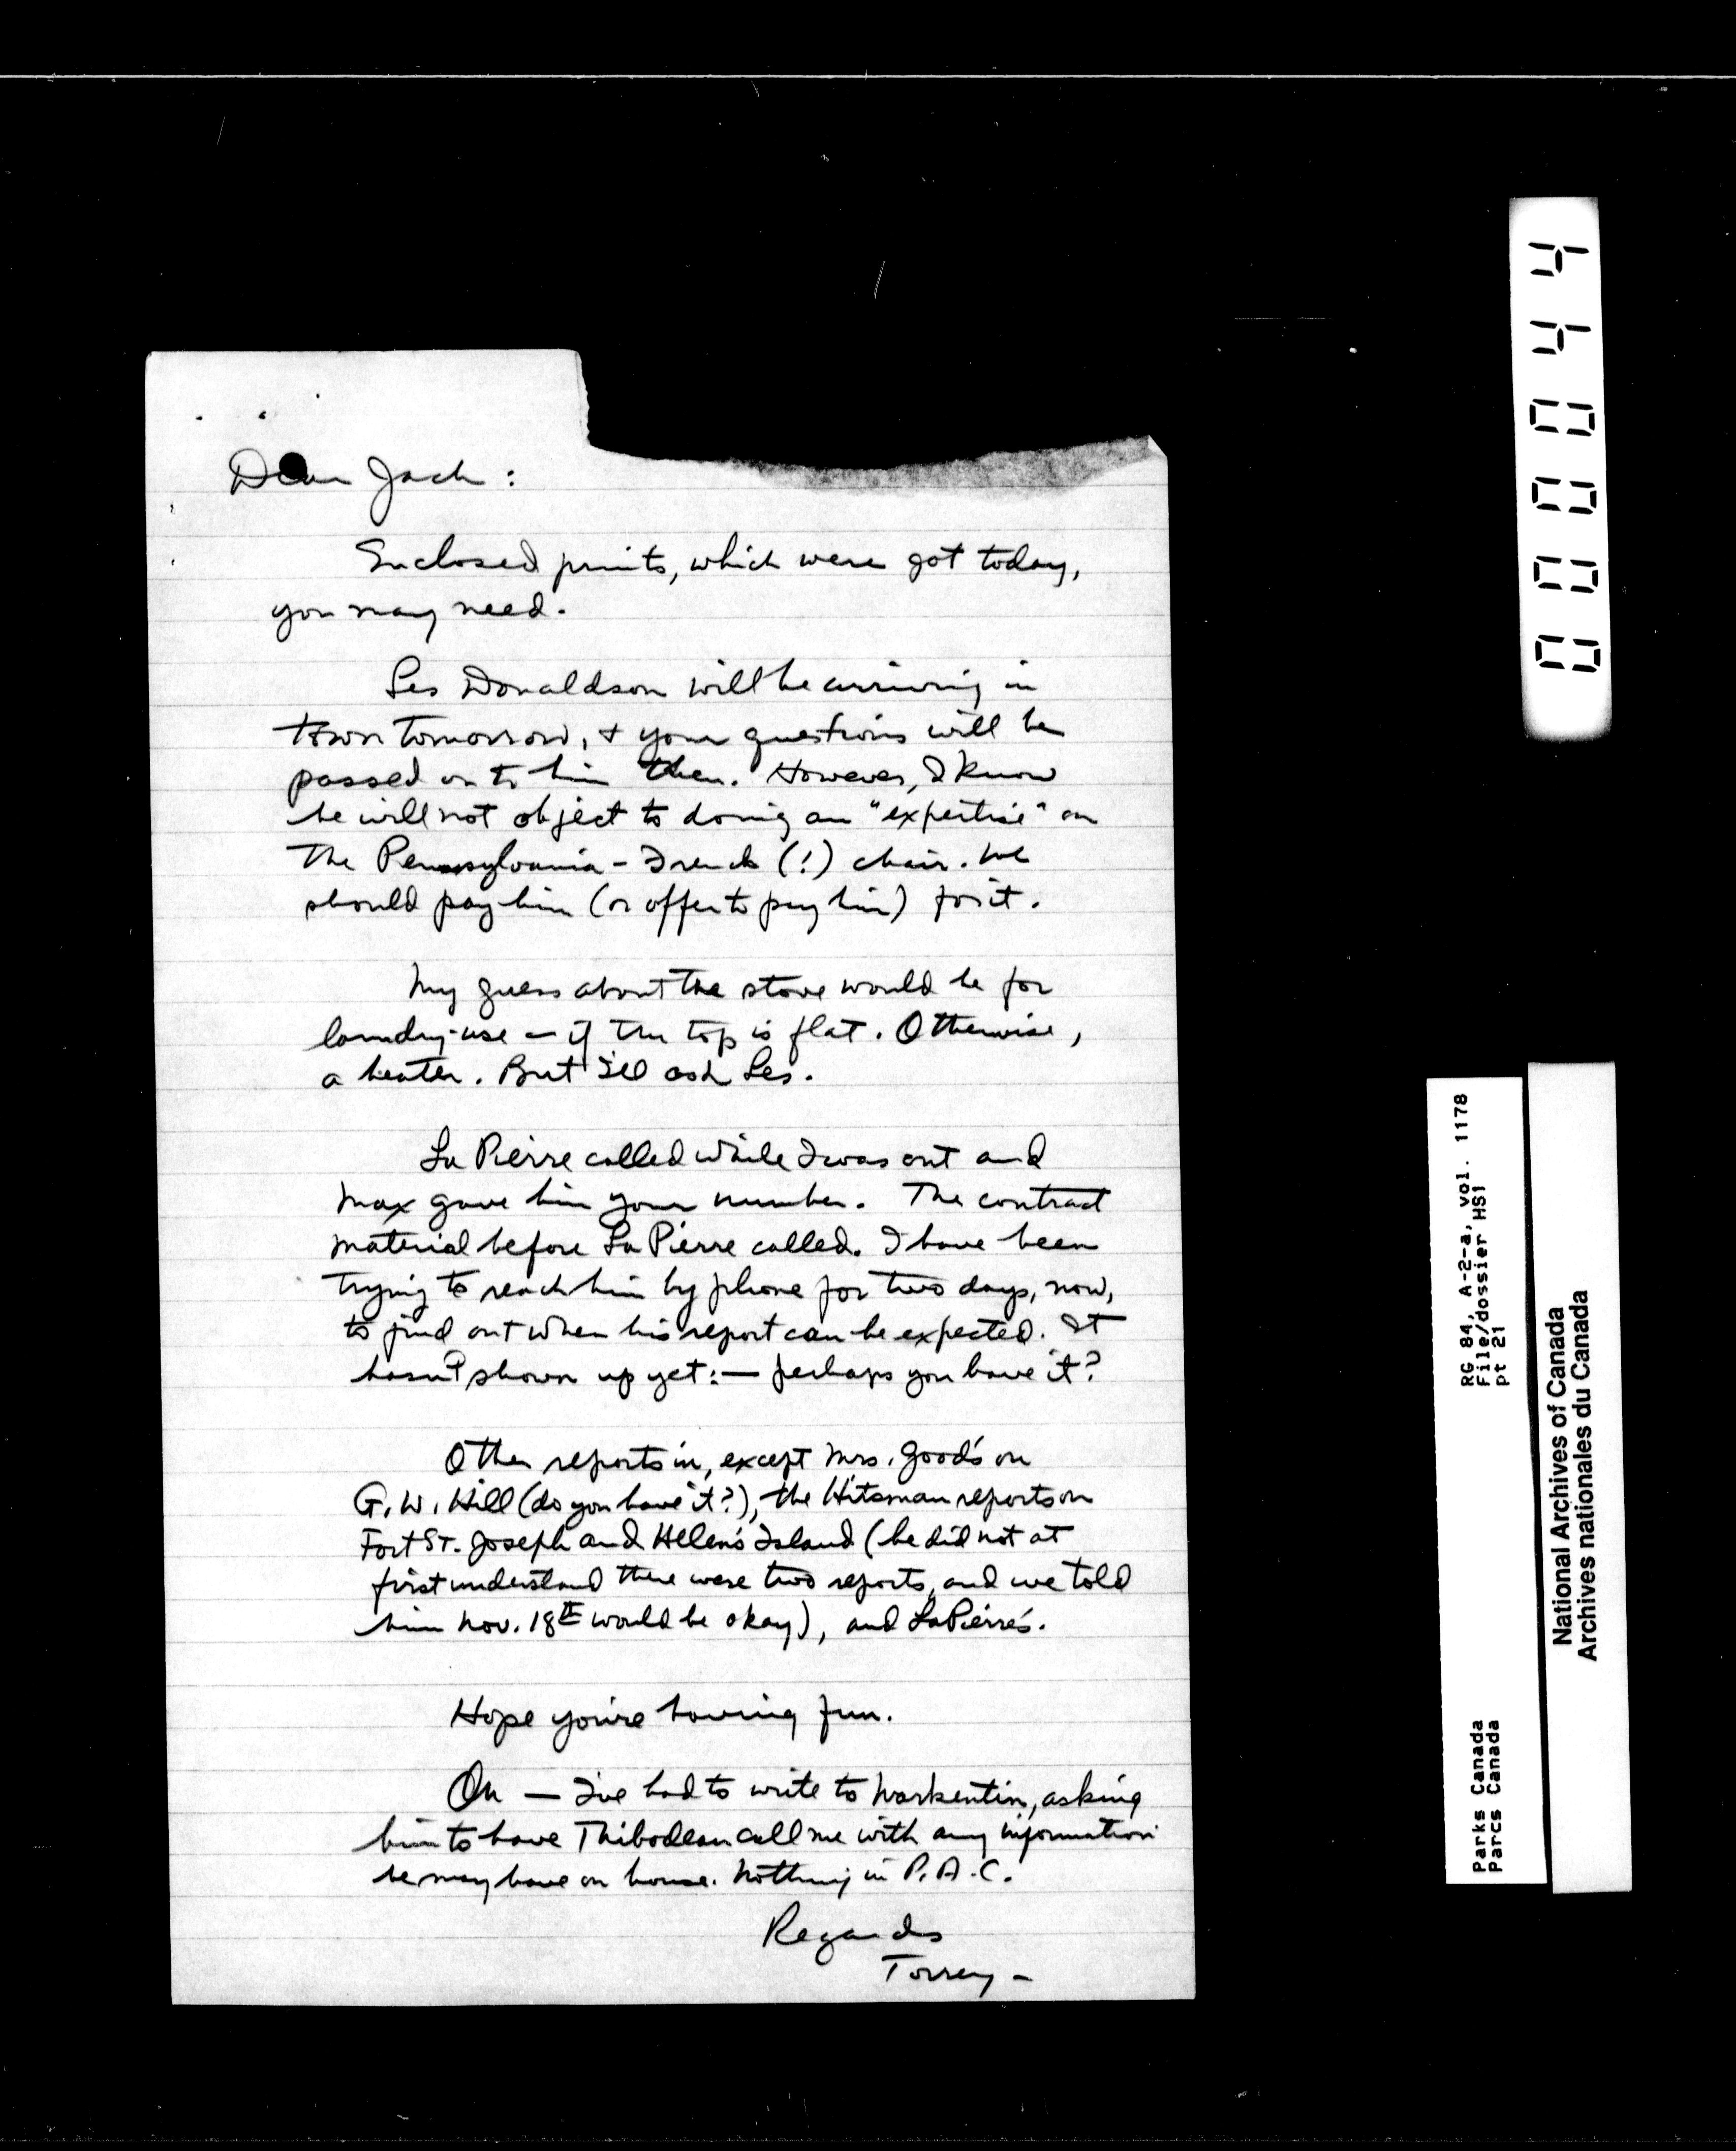 Dear Jack:
Enclosed prints, which were got today,
you may need.
Les Donaldson will be arriving in
town tomorrow, + your questions will be
passed on to him then. However, I know
he will not object to doing an "expertise" on
the Pennsylvania - French (!) chair. We
should pay him (or offer to pay him) for it.
My guess about the stove would be for
laundry-use - if the top is flat. Otherwise,
a heater. But I'll ask Les.
La Pierre called while I was out and
Max gave him your number. The contract
material before La Pierre called. I have been
trying to reach him by phone for two days, now,
to find out when his report can be expected. It
hasn't shown up yet: — perhaps you have it?
Other reports in, except Mrs. Good's on
G. W. Hill (do you have it?), the Hitsman reports on
Fort St. Joseph and Helen's Island (he did not at
first understand there were two reports, and we told
him Nov. 18th would be okay), and LaPierre's.
Hope you're having fun.
Oh — I've had to write to Warkentin, asking
him to have Thibodeau call me with any information
he may have on house. Nothing in P.A.C.
Regards
Torrey -
000044
RG 84, A-2-a, vol. 1178
File/dossier HS1
pt 21
Parks Canada
Parcs Canada
National Archives of Canada
Archives nationales du Canada